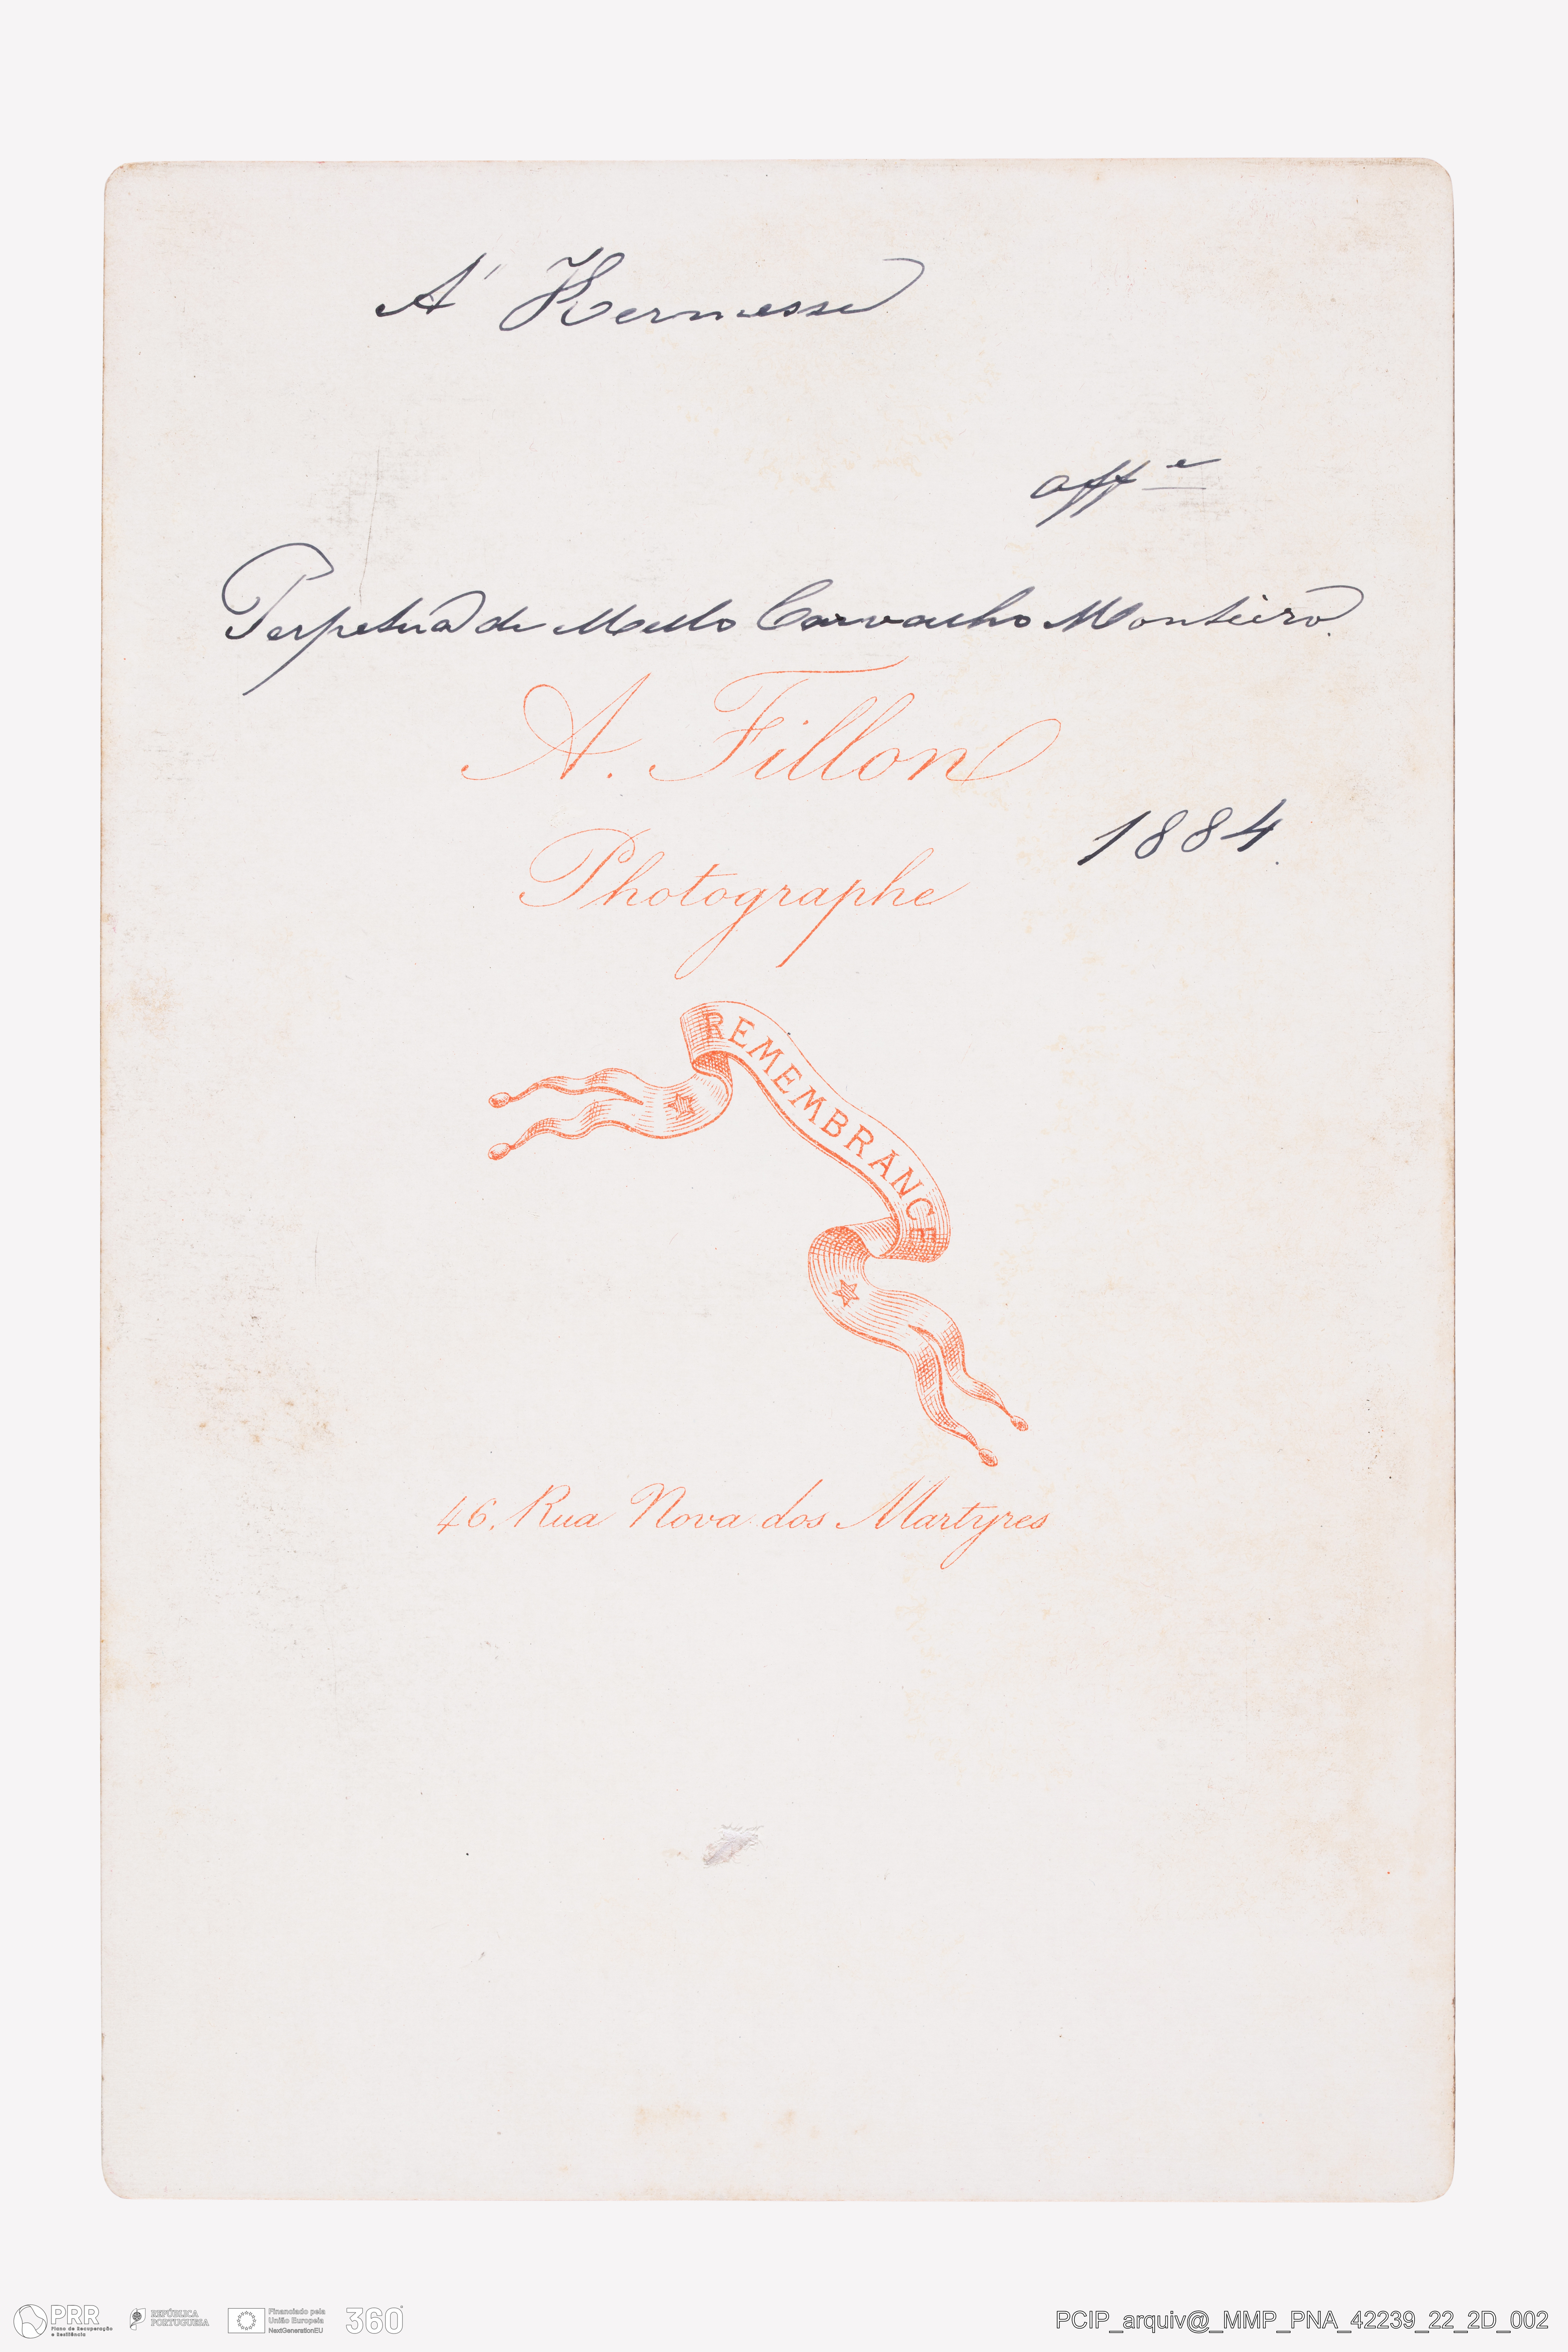 A' Kermesse
aff e
Perpetua de Mello Carvalho Monteiro.
A. Fillon
1884.
Photographe
REMEMBRANCE
46. Rua Nova dos Martyres
PRR
Plano de Recuperação
e Resiliência
REPÚBLICA
PORTUGUESA
Financiado pela
União Europeia
NextGenerationEU
360°
PCIP_arquiv@_MMP_PNA_42239_22_2D_002